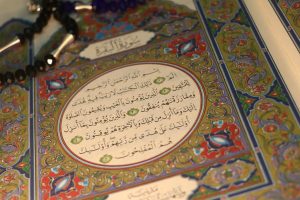 سُورَةُ الْبَقَرَةِ
بِسْمِ اللهِ الرَّحْمٰنِ الرَّحِيمِ
الٓمٓ ذٰلِكَ الْكِتَابُ لَا رَيْبَ فِيهِ هُدًى
لِلْمُتَّقِينَ الَّذِينَ يُؤْمِنُونَ بِالْغَيْبِ وَيُقِيمُونَ الصَّلٰوةَ
وَمِمَّا رَزَقْنَاهُمْ يُنْفِقُونَ وَالَّذِينَ يُؤْمِنُونَ بِمَا أُنْزِلَ
إِلَيْكَ وَمَا أُنْزِلَ مِنْ قَبْلِكَ وَبِالْاٰخِرَةِ هُمْ يُوقِنُونَ
أُولٰئِكَ عَلٰى هُدًى مِنْ رَبِّهِمْ وَأُولٰئِكَ
هُمُ الْمُفْلِحُونَ